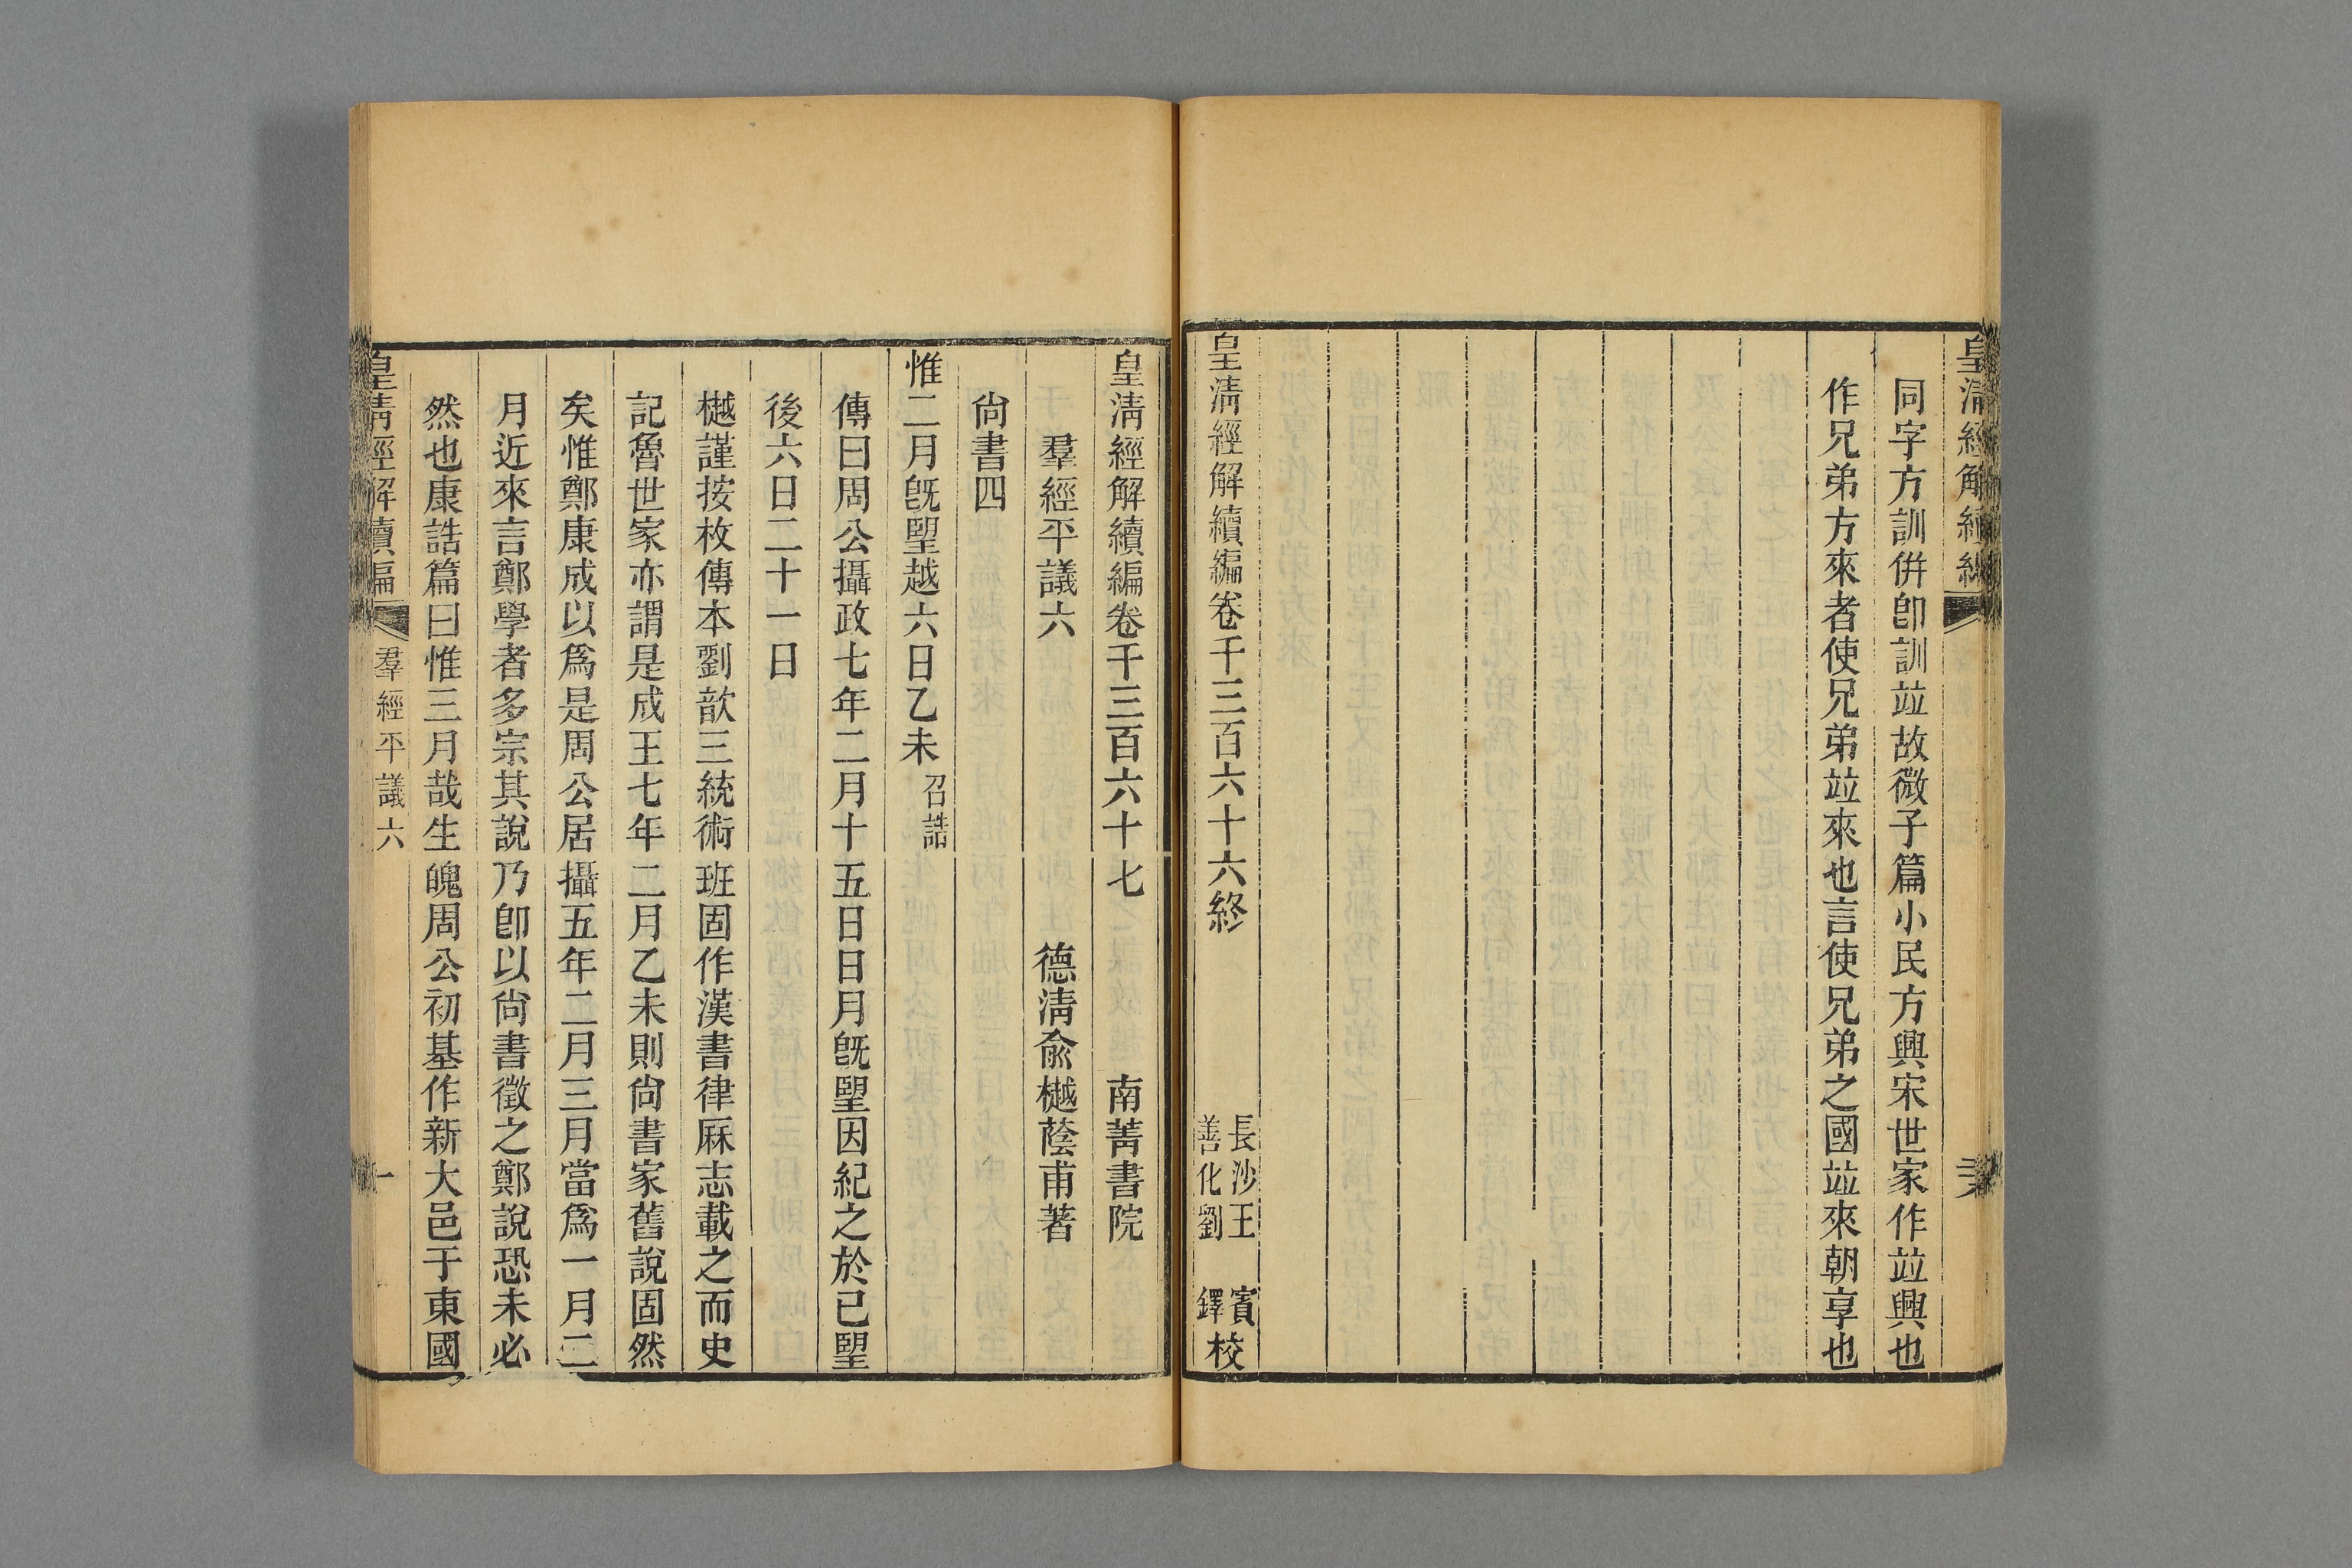 皇清經解續編
同字方訓併卽訓竝故微子篇小民方興宋世家作竝興也
作兄弟方來者使兄弟竝來也言使兄弟之國竝來朝享也
皇清經解續編卷千三百六十六終
長沙王賓
善化劉鐸校
皇清經解續編卷千三百六十七 南菁書院
羣經平議六 德清兪樾蔭甫著
尙書四
惟二月旣朢越六日乙未召誥
傳曰周公攝政七年二月十五日日月旣朢因紀之於已朢
後六日二十一日
樾謹按枚傳本劉歆三統術班固作漢書律厤志載之而史
記魯世家亦謂是成王七年二月乙未則尙書家舊說固然
矣惟鄭康成以爲是周公居攝五年二月三月當爲一月二
月近來言鄭學者多宗其說乃卽以尙書徵之鄭說恐未必
然也康誥篇曰惟三月哉生魄周公初基作新大邑于東國
皇清經解續編 羣經平議六 一